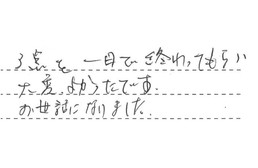 3点を一日で終わってもらい
大変よかったです。
お世話になりました。